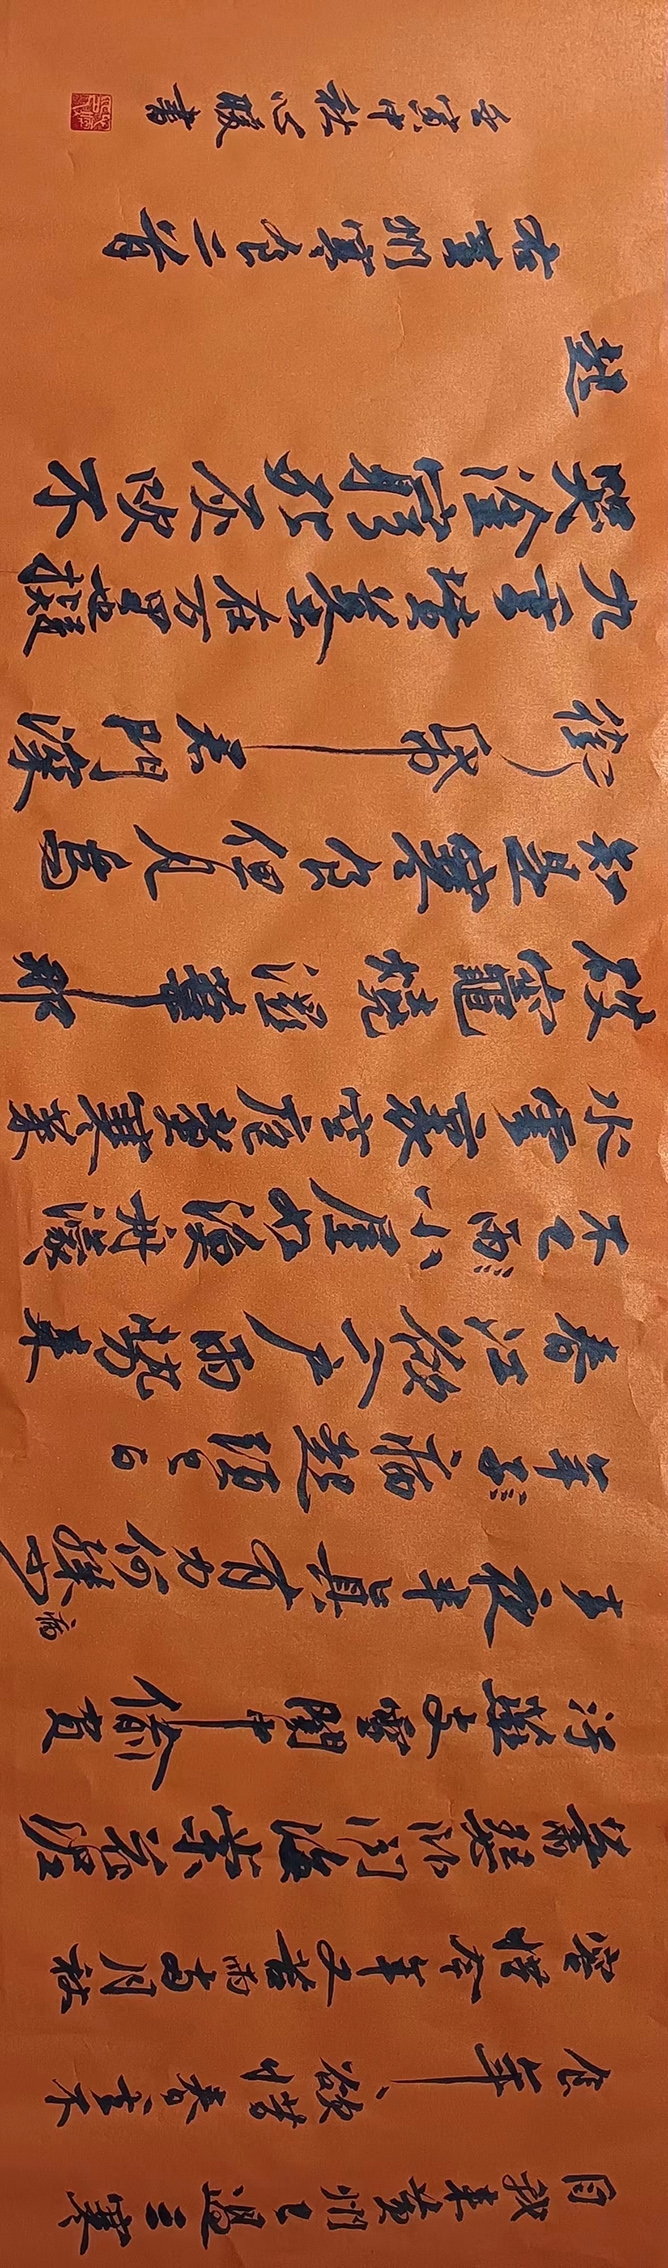 自我來黃州已過三寒
食年年欲惜春春去不
容惜今年又苦雨兩月秋
蕭瑟臥聞海棠花泥
汙燕支雪闇中偷負
去夜半真有力何殊少病
年子病起須已白
春江欲入戶雨勢來
不已雨小屋如漁舟濛濛
水雲裏空庖煮寒菜
破竈燒濕葦那
知是寒食但見烏
銜帋君門深
九重墳墓在万里也擬
哭塗窮死灰吹不
起
右黃州寒食二首
壬寅中秋心暖書